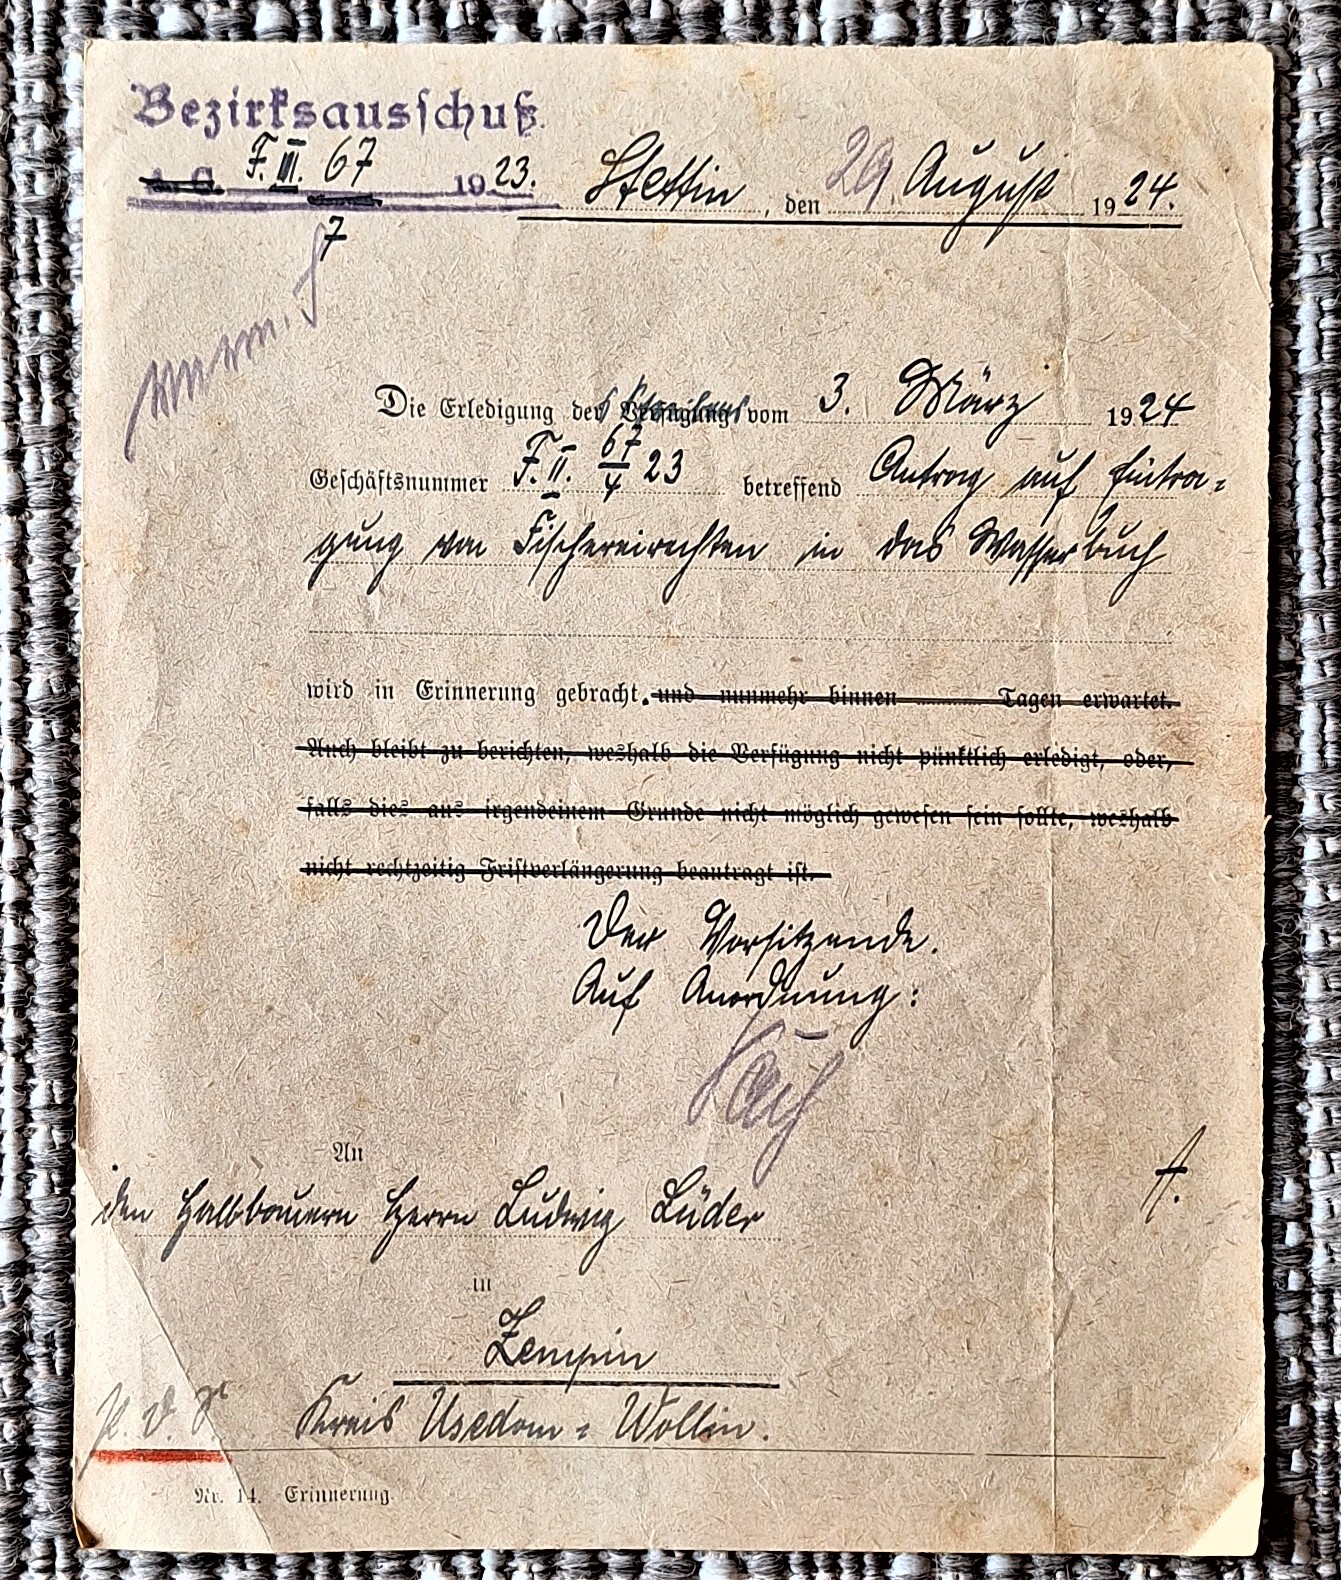 Bezirksausschuß.
F. III. 67 1923. Stettin, den 29. August 1924.
7
Die Erledigung des Schreibens vom 3. März 1924
Geschäftsnummer F. II. 67/4 23 betreffend Antrag auf Eintra=
gung von Fischereirechten in das Wasserbuch
wird in Erinnerung gebracht. und nunmehr binnen Tagen erwartet.
Auch bleibt zu berichten, weshalb die Verfügung nicht pünktlich erledigt, oder,
falls dies aus irgendeinem Grunde nicht möglich gewesen sein sollte, weshalb
nicht rechtzeitig Fristverlängerung beantragt ist.
Der Vorsitzende.
Auf Anordnung:
An
den Halbbauern Herrn Ludwig Lüder
in
Zempin
Kreis Usedom = Wollin.
Nr. 14. Erinnerung.